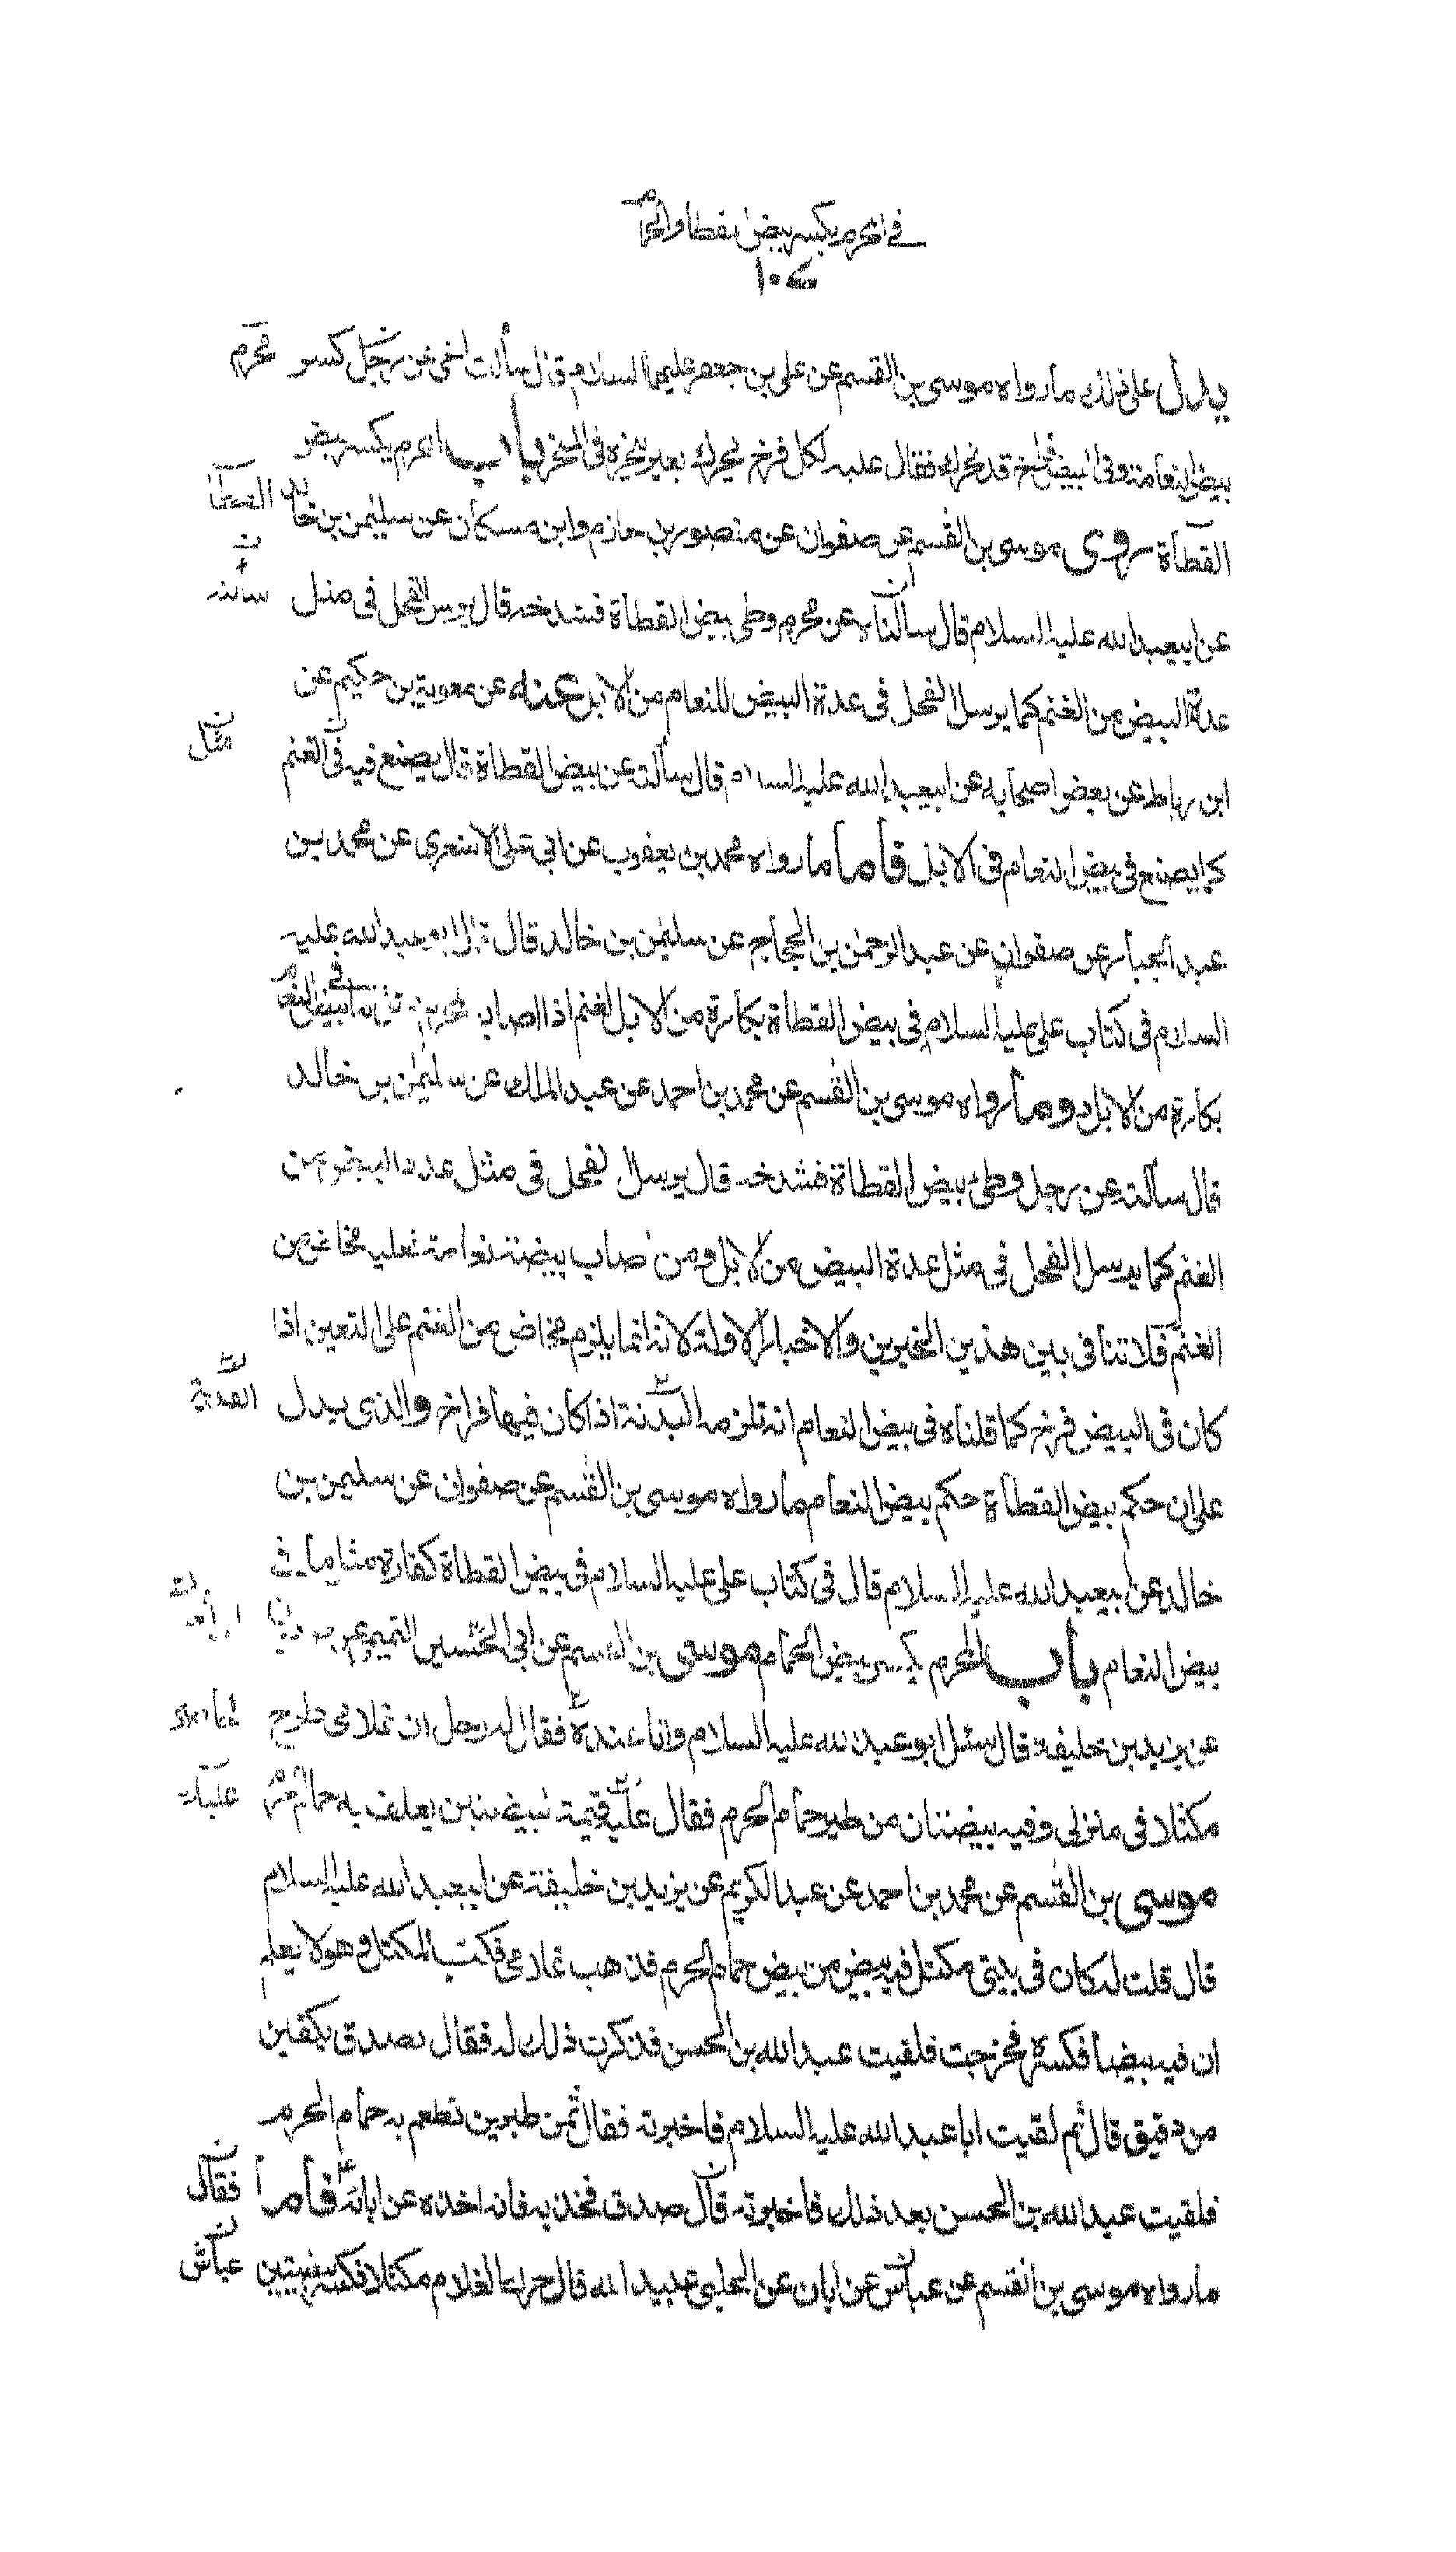 في المحرم يكسر بيض القطا والحمام
١٠٤
يدل على ذلك ما رواه موسى بن القسم عن علي بن جعفر عليهما السلام قال سألت اخي عن رجل كسر
محرم
بيض نعامة وفي البيض فراخ قد تحرك فقال عليه لكل فرخ تحرك بعير ينحره في المنحر باب المحرم يكسر بيض
القطاة روى موسى بن القسم عن صفوان عن منصور بن حازم وابن مسكان عن سليمن بن خالد
القطا
عن ابيعبد الله عليه السلام قال سالناه عن محرم وطى بيض القطاة فشدخه قال يرسل الفحل في مثل
سألته
عدة البيض من الغنم كما يرسل الفحل في عدة البيض للنعام من الابل عنه عن معوية بن حكيم عن
ابن رباط عن بعض اصحابه عن ابيعبد الله عليه السلام قال سألته عن بيض القطاة قال يصنع فيه في الغنم
مثل
كما يصنع في بيض النعام في الابل فاما ما رواه محمد بن يعقوب عن ابي علي الاشعري عن محمد بن
عبد الجبار عن صفوان عن عبد الرحمن بن الحجاج عن سليمن بن خالد قال قال ابو عبد الله عليه
السلام في كتاب علي عليه السلام في بيض القطاة بكارة من الغنم اذا اصابه المحرم مثل ما في بيض النعام
بكارة من الابل وما رواه موسى بن القسم عن محمد بن احمد عن عبد الملك عن سليمن بن خالد
قال سألته عن رجل وطئ بيض القطاة فشدخه قال يرسل الفحل في مثل عدد البيض من
الغنم كما يرسل الفحل في مثل عدة البيض من الابل ومن اصاب بيضة نعامة فعليه مخاض من
الغنم فلا تنافى بين هذين الخبرين والاخبار الاولة لانه انما يلزم مخاض من الغنم على التعين اذا
كان في البيض فرخ كما قلناه في بيض النعام انه تلزمه البدنة اذا كان فيها فراخ والذى يدل
الفدية
على ان حكم بيض القطاة حكم بيض النعام ما رواه موسى بن القسم عن صفوان عن سليمن بن
خالد عن ابيعبد الله عليه السلام قال في كتاب علي عليه السلام في بيض القطاة كفارة مثل ما في
بيض النعام باب المحرم يكسر بيض الحمام موسى بن القسم عن ابي الحسين التميمي عن
عن يزيد بن خليفة قال سئل ابو عبد الله عليه السلام وانا عنده فقال له رجل ان غلامى طرح
مكتلا في منزلى وفيه بيضتان من طير حمام الحرم فقال عليه قيمة البيضتين يعلف به حمام الحرم
موسى بن القسم عن محمد بن احمد عن عبد الكريم عن يزيد بن خليفة عن ابيعبد الله عليه السلام
قال قلت له كان في بيتي مكتل فيه بيض من بيض حمام الحرم فذهب غلامى فكب المكتل وهو لا يعلم
ان فيه بيضا فكسره فخرجت فلقيت عبد الله بن الحسن فذكرت ذلك له فقال تصدق بكفين
من دقيق قال ثم لقيت ابا عبد الله عليه السلام فاخبرته فقال ثمن طيرين تطعم به حمام الحرم
فلقيت عبد الله بن الحسن بعد ذلك فاخبرته قال صدق فخذ به فانه اخذه عن ابائه فاما
فقال
ما رواه موسى بن القسم عن عباس عن ابان عن الحلبي عبيد الله قال حرك الغلام مكتلا فكسر بيضتين
عباس